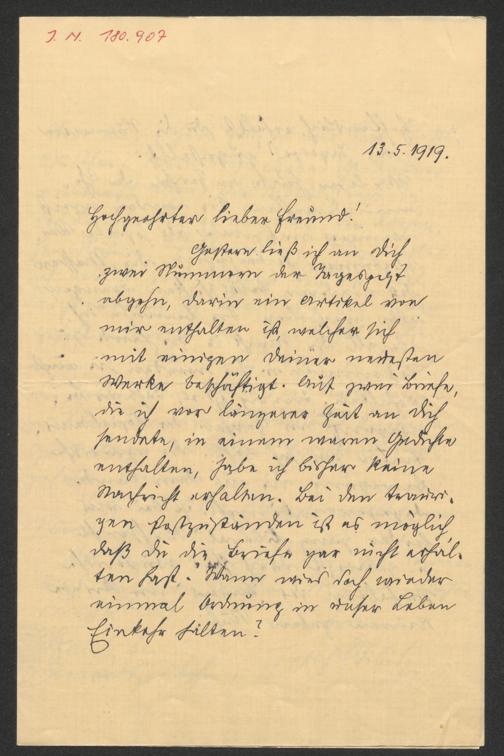 J. N. 180.907
13.5.1919.
Hochgeehrter lieber Freund!
Gestern ließ ich an Dich
zwei Nummern der Tagespost
abgehn, darin ein Artikel von
mir enthalten ist, welcher sich
mit einigen Deiner neuesten
Werke beschäftigt. Auf zwei Briefe,
die ich vor längerer Zeit an Dich
sendete, in einem waren Gedichte
enthalten, habe ich bisher keine
Nachricht erhalten. Bei den trauri-
gen Postzuständen ist es möglich
daß Du die Briefe gar nicht erhal-
ten hast. Wann wird doch wieder
einmal Ordnung in unser Leben
Einkehr halten?